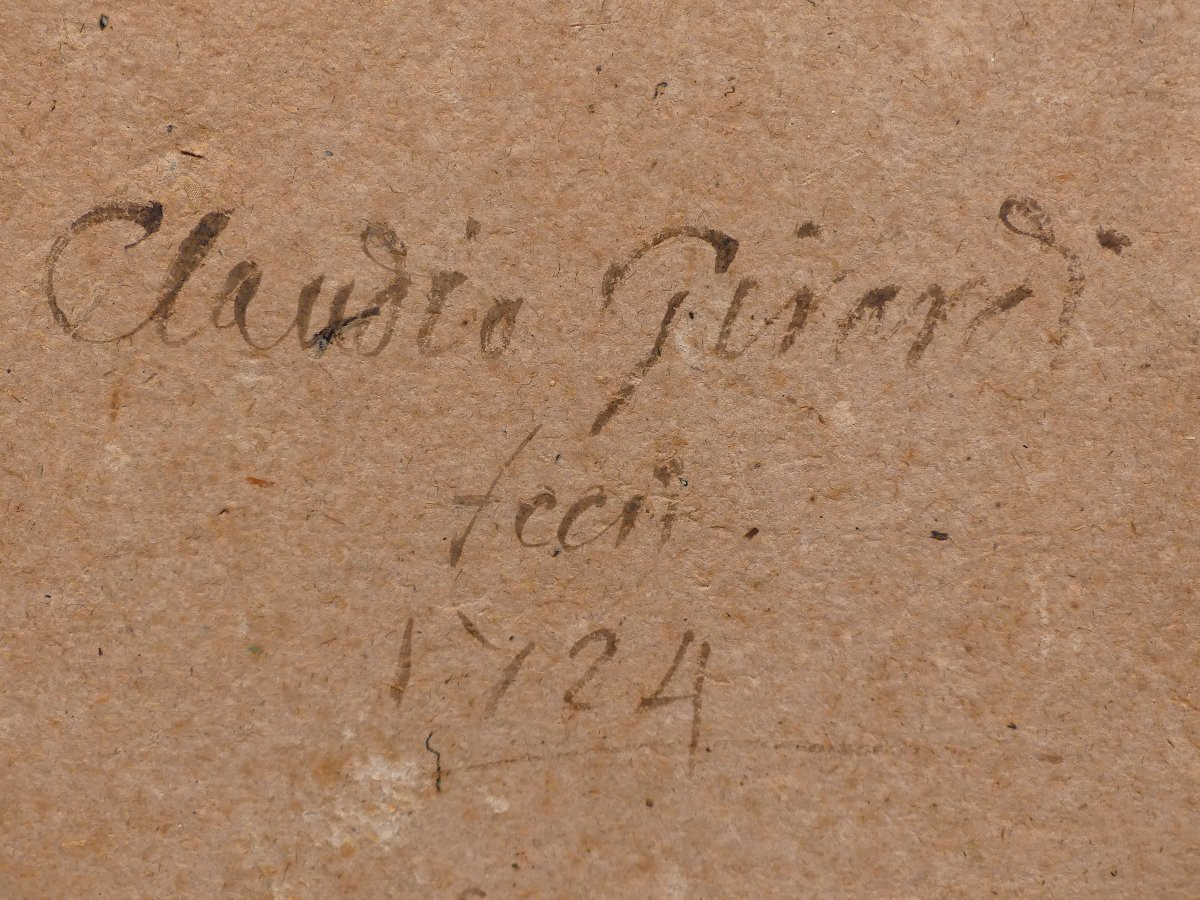 Claudio Girardi
fecit
1724